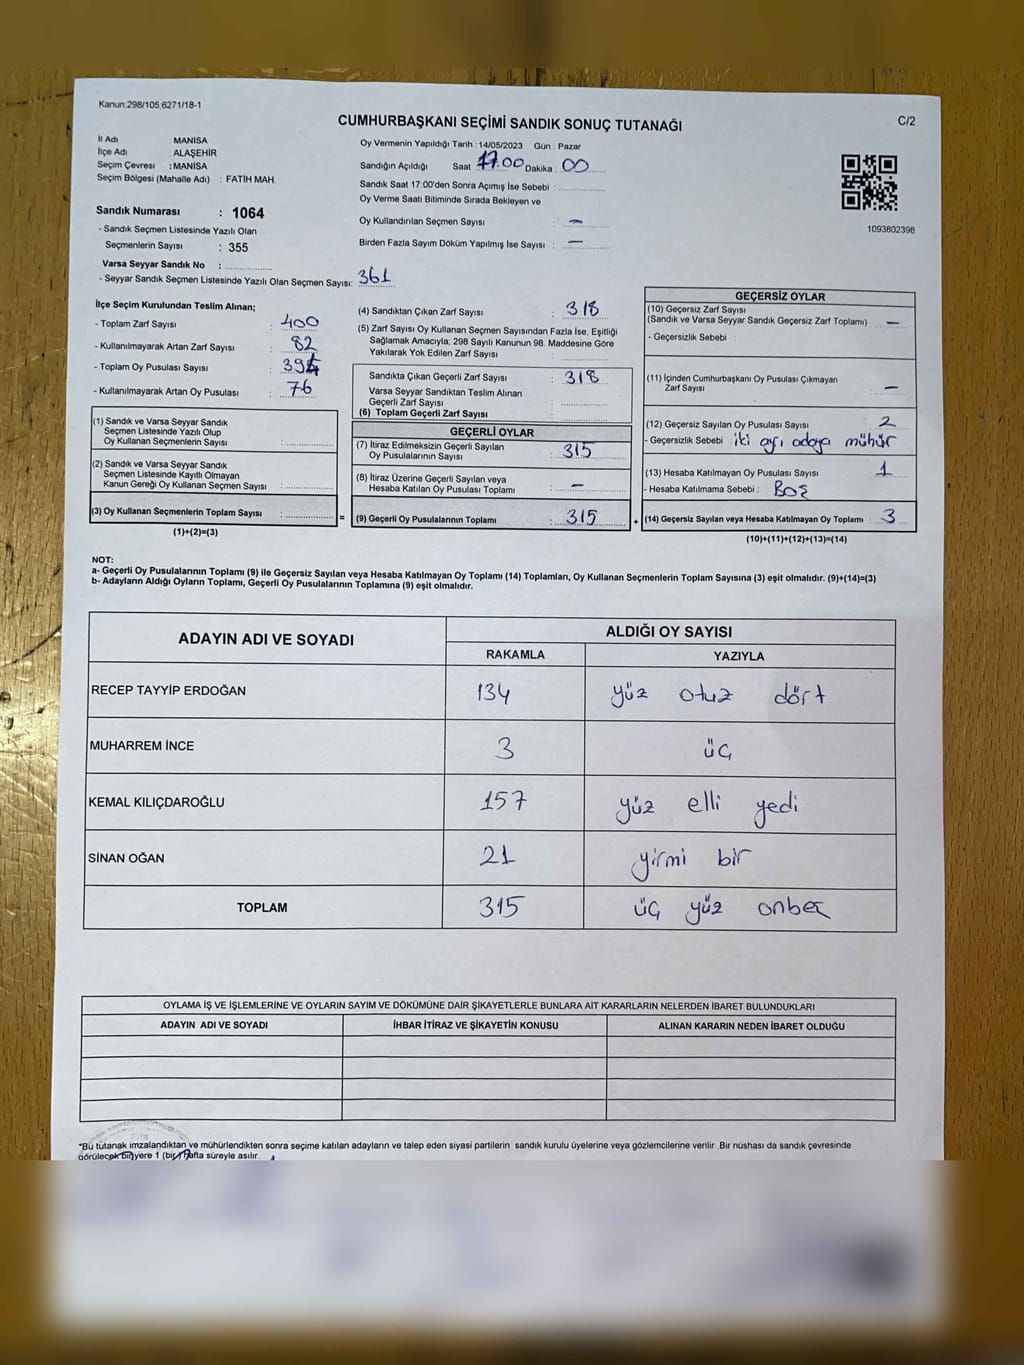 Kanun;298/105,6271/18-1
C/2
CUMHURBAŞKANI SEÇİMİ SANDIK SONUÇ TUTANAĞI
İl Adı MANİSA
İlçe Adı : ALAŞEHİR
Seçim Çevresi : MANİSA
Seçim Bölgesi (Mahalle Adı) : FATİH MAH.
Sandık Numarası : 1064
- Sandık Seçmen Listesinde Yazılı Olan
Seçmenlerin Sayısı : 355
Varsa Seyyar Sandık No :
- Seyyar Sandık Seçmen Listesinde Yazılı Olan Seçmen Sayısı: 361
Oy Vermenin Yapıldığı Tarih : 14/05/2023 Gün : Pazar
Sandığın Açıldığı Saat 17:00 Dakika : 00
Sandık Saat 17:00'den Sonra Açımış İse Sebebi :
Oy Verme Saati Bitiminde Sırada Bekleyen ve
Oy Kullandırılan Seçmen Sayısı : —
Birden Fazla Sayım Döküm Yapılmış İse Sayısı : —
1093802398
İlçe Seçim Kurulundan Teslim Alınan;
- Toplam Zarf Sayısı : 400
- Kullanılmayarak Artan Zarf Sayısı : 82
- Toplam Oy Pusulası Sayısı :
- Kullanılmayarak Artan Oy Pusulası : 76
(1) Sandık ve Varsa Seyyar Sandık
Seçmen Listesinde Yazılı Olup
Oy Kullanan Seçmenlerin Sayısı :
(2) Sandık ve Varsa Seyyar Sandık
Seçmen Listesinde Kayıtlı Olmayan
Kanun Gereği Oy Kullanan Seçmen Sayısı :
(3) Oy Kullanan Seçmenlerin Toplam Sayısı :
(1)+(2)=(3)
=
(4) Sandıktan Çıkan Zarf Sayısı : 318
(5) Zarf Sayısı Oy Kullanan Seçmen Sayısından Fazla İse, Eşitliği
Sağlamak Amacıyla; 298 Sayılı Kanunun 98. Maddesine Göre
Yakılarak Yok Edilen Zarf Sayısı :
Sandıkta Çıkan Geçerli Zarf Sayısı : 318
Varsa Seyyar Sandıktan Teslim Alınan
Geçerli Zarf Sayısı :
(6) Toplam Geçerli Zarf Sayısı :
GEÇERLİ OYLAR
(7) İtiraz Edilmeksizin Geçerli Sayılan
Oy Pusulalarının Sayısı : 315
(8) İtiraz Üzerine Geçerli Sayılan veya
Hesaba Katılan Oy Pusulası Toplamı : —
(9) Geçerli Oy Pusulalarının Toplamı : 315
+
GEÇERSİZ OYLAR
(10) Geçersiz Zarf Sayısı
(Sandık ve Varsa Seyyar Sandık Geçersiz Zarf Toplamı) : —
- Geçersizlik Sebebi :
(11) İçinden Cumhurbaşkanı Oy Pusulası Çıkmayan
Zarf Sayısı —
(12) Geçersiz Sayılan Oy Pusulası Sayısı : 2
- Geçersizlik Sebebi : iki ayrı adaya mühür
(13) Hesaba Katılmayan Oy Pusulası Sayısı : 1
- Hesaba Katılmama Sebebi : Boş
(14) Geçersiz Sayılan veya Hesaba Katılmayan Oy Toplamı : 3
(10)+(11)+(12)+(13)=(14)
NOT:
a- Geçerli Oy Pusulalarının Toplamı (9) ile Geçersiz Sayılan veya Hesaba Katılmayan Oy Toplamı (14) Toplamları, Oy Kullanan Seçmenlerin Toplam Sayısına (3) eşit olmalıdır. (9)+(14)=(3)
b- Adayların Aldığı Oyların Toplamı, Geçerli Oy Pusulalarının Toplamına (9) eşit olmalıdır.
ADAYIN ADI VE SOYADI ALDIĞI OY SAYISI
RAKAMLA YAZIYLA
RECEP TAYYİP ERDOĞAN 134 yüz otuz dört
MUHARREM İNCE 3 üç
KEMAL KILIÇDAROĞLU 157 yüz elli yedi
SİNAN OĞAN 21 yirmi bir
TOPLAM 315 üç yüz onbeş
OYLAMA İŞ VE İŞLEMLERİNE VE OYLARIN SAYIM VE DÖKÜMÜNE DAİR ŞİKAYETLERLE BUNLARA AİT KARARLARIN NELERDEN İBARET BULUNDUKLARI
ADAYIN ADI VE SOYADI İHBAR İTİRAZ VE ŞİKAYETİN KONUSU ALINAN KARARIN NEDEN İBARET OLDUĞU
*Bu tutanak imzalandıktan ve mühürlendikten sonra seçime katılan adayların ve talep eden siyasi partilerin sandık kurulu üyelerine veya gözlemcilerine verilir .Bir nüshası da sandık çevresinde
görülecek bir yere 1 (bir) hafta süreyle asılır.